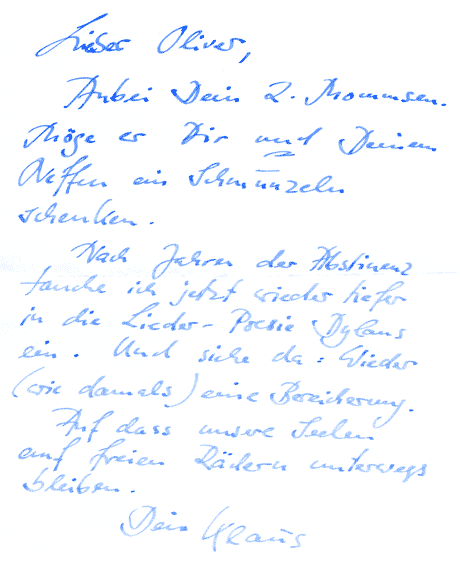 Lieber Oliver,
Anbei Dein 2. Mommsen.
Möge er Dir und Deinem
Neffen ein Schmunzeln
schenken.
Nach Jahren der Abstinenz
tauche ich jetzt wieder tiefer
in die Lieder-Poesie Dylans
ein. Und siehe da: Wieder
(wie damals) eine Bereicherung.
Auf dass unsere Seelen
auf freien Rädern unterwegs
bleiben.
Dein Klaus